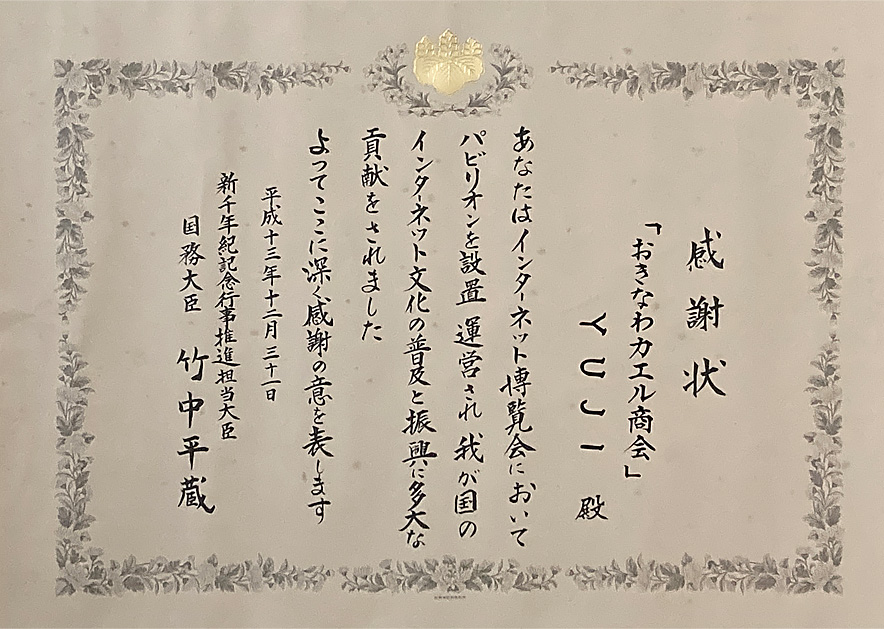 感謝状
「おきなわカエル商会」
YUJI 殿
あなたはインターネット博覧会において
パビリオンを設置 運営され 我が国の
インターネット文化の普及と振興に多大な
貢献をされました
よってここに深く感謝の意を表します
平成十三年十二月三十一日
新千年紀記念行事推進担当大臣
国務大臣 竹中平蔵